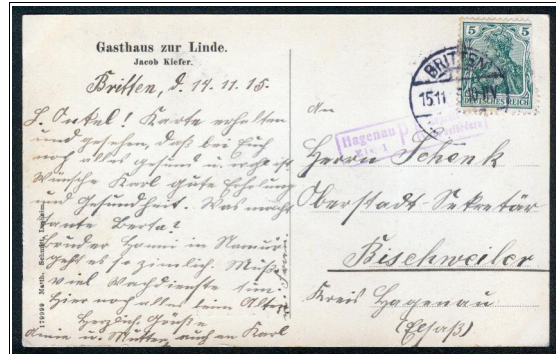 Gasthaus zur Linde.
Jacob Kiefer.
Britten, d. 14.11.15.
L. Onkel! Karte erhalten
und gesehen, daß bei Euch
noch alles gesund u. recht ist
Wünsche Karl gute Erholung
und Gesundheit. Was macht
Tante Berta?
Bruder Hanni in Namur:
geht es so ziemlich. Muß
viel Wachdienste tun.
Hier noch alles beim Alten
Herzlich. Grüße
u. Mutter, auch an Karl
179999
BRITTEN
15.11
5
5
DEUTSCHES REICH
Hagenau
Kls. 1
An
Herrn Schenk
Oberstadt-Sekretär
Bischweiler
Kreis Hagenau
(Elsaß)